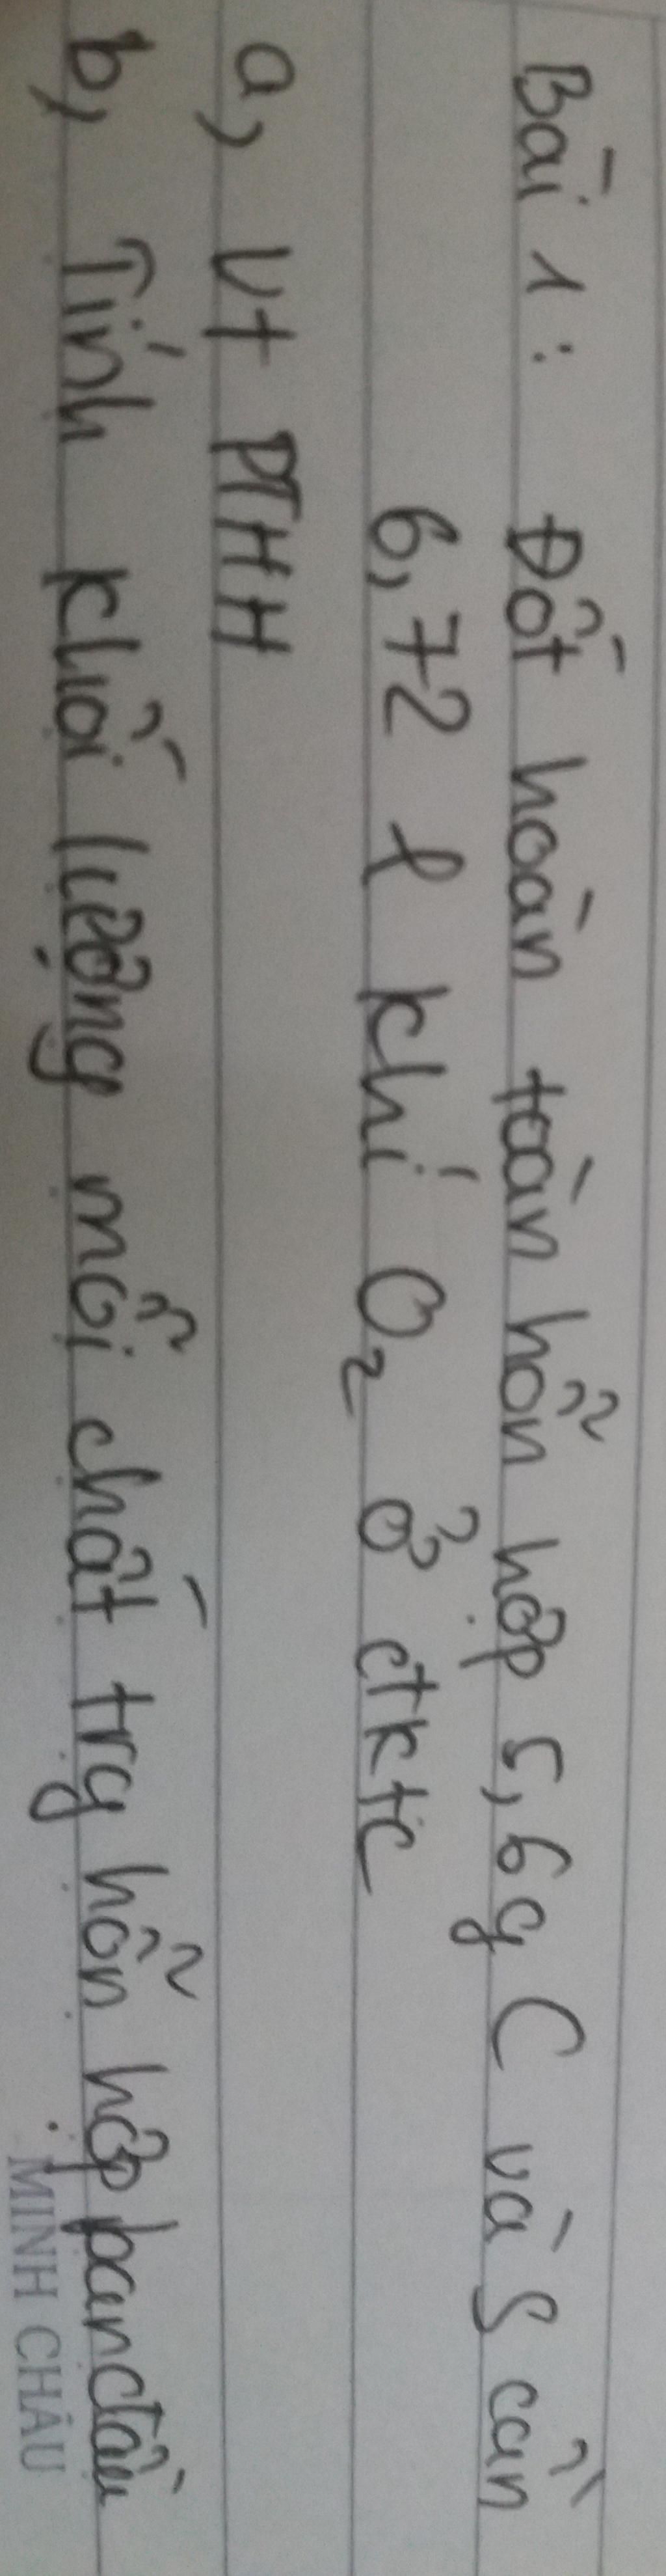 Bài 1: Đốt hoàn toàn hỗn hợp 5,6g C và S cần
6,72 l khí O₂ ở đktc
a, Vt PTHH
b, Tính khối lượng mỗi chất trg hỗn hợp banđầu
MINH CHÂU